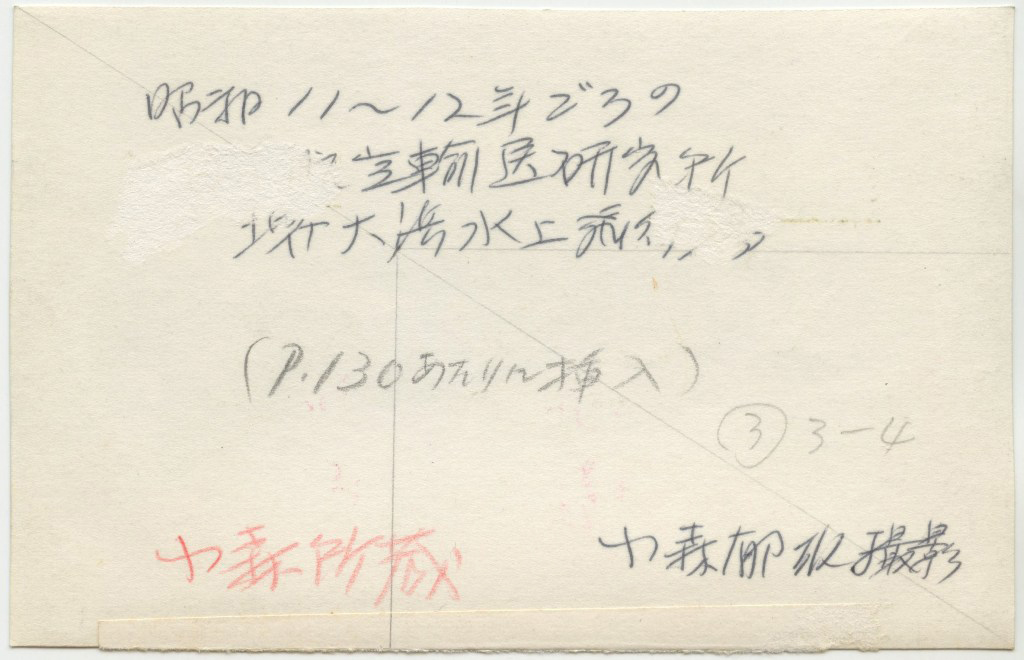 昭和11〜12年ごろの
空輸送研究所
堺大浜水上
(P.130あたりに挿入)
③ 3-4
小森所蔵
小森郁 撮影